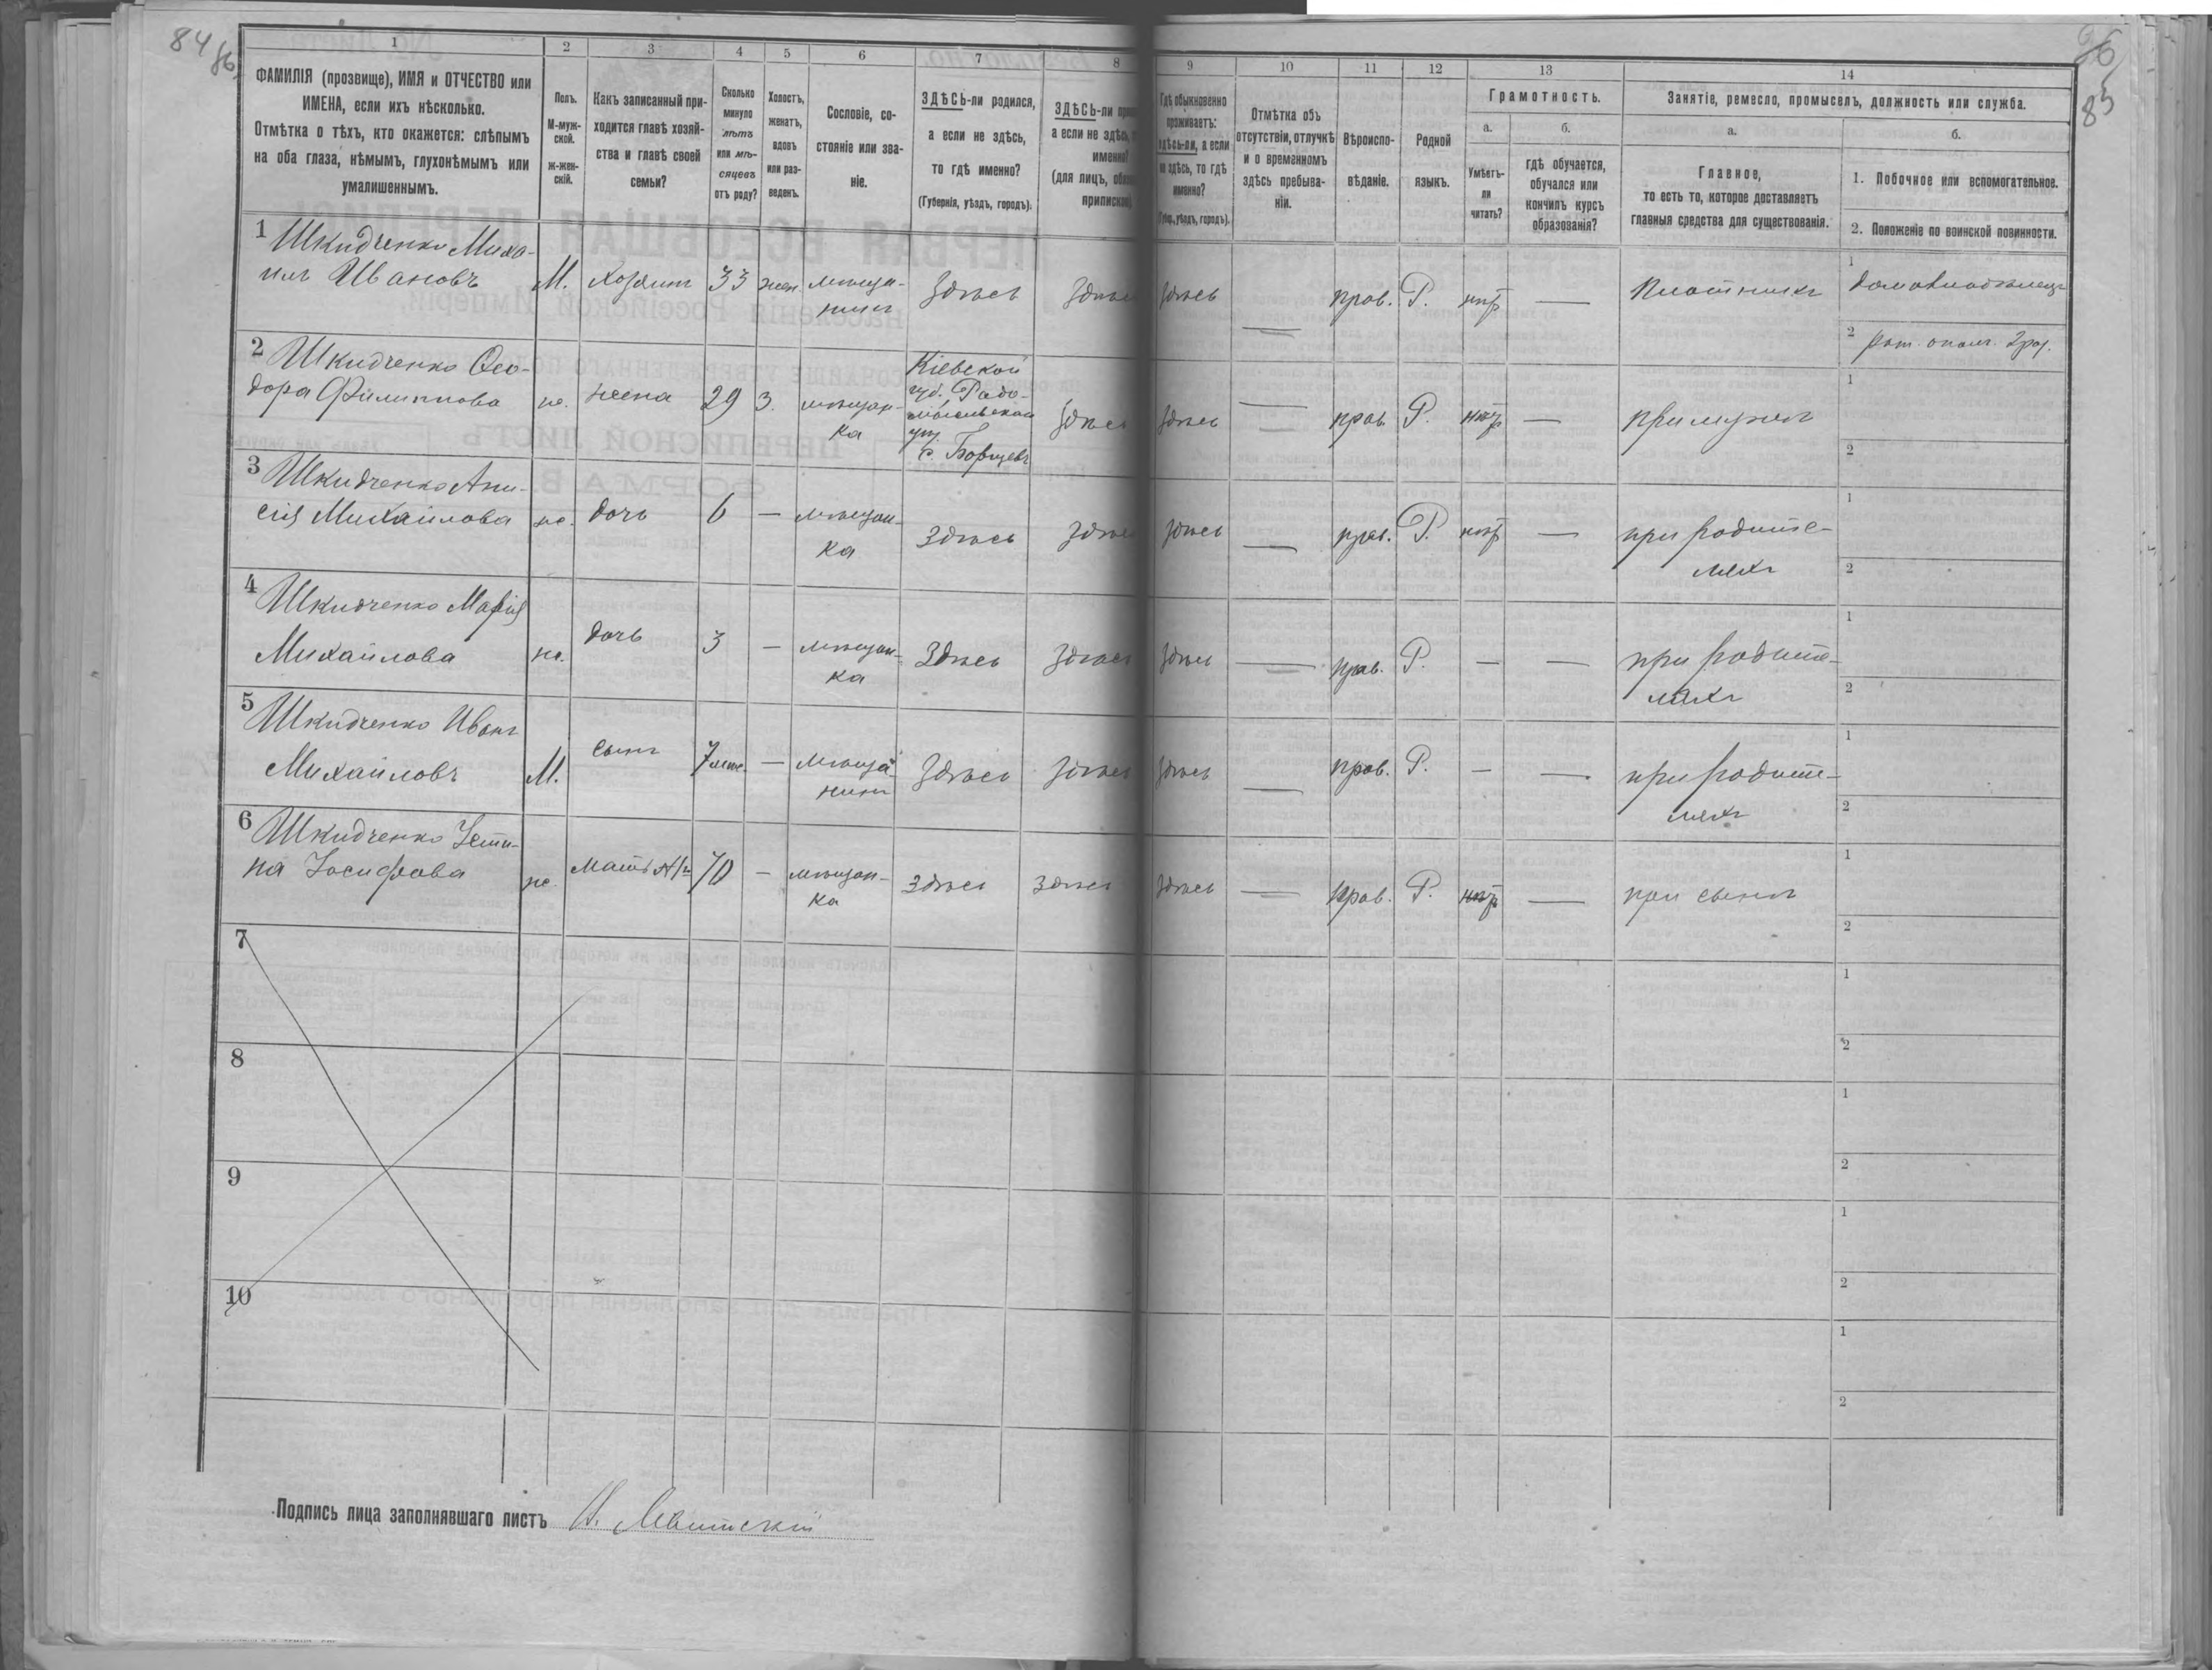 84
86
1
2
3
4
5
6
7
8
ФАМИЛІЯ (прозвище), ИМЯ и ОТЧЕСТВО или
ИМЕНА, если ихъ нѣсколько.
Отмѣтка о тѣхъ, кто окажется: слѣпымъ
на оба глаза, нѣмымъ, глухонѣмымъ или
умалишеннымъ.
Полъ.
М-муж-
ской.
ж-жен-
скій.
Какъ записанный при-
ходится главѣ хозяй-
ства и главѣ своей
семьи?
Сколько
минуло
лѣтъ
или мѣ-
сяцевъ
отъ роду?
Холостъ,
женатъ,
вдовъ
или раз-
веденъ.
Сословіе, со-
стояніе или зва-
ніе.
ЗДѢСЬ-ли родился,
а если не здѣсь,
то гдѣ именно?
(Губернія, уѣздъ, городъ).
ЗДѢСЬ-ли
а если не здѣсь,
именно?
(для лицъ,
1 Шкидченко Миха-
илъ Ивановъ
М.
хозяинъ
33
жен.
мѣща-
нинъ
Здѣсь
Здѣсь
2 Шкидченко Ѳео-
дора Филиппова
ж.
жена
29
З.
мѣщан-
ка
Кіевской
губ. Радо-
мысльскаго
уѣз.
с. Борщевъ
Здѣсь
3 Шкидченко Ани-
сія Михайлова
ж.
дочь
6
—
мѣщан-
ка
Здѣсь
Здѣсь
4 Шкидченко Марія
Михайлова
ж.
дочь
3
—
мѣщан-
ка
Здѣсь
Здѣсь
5 Шкидченко Иванъ
Михайловъ
М.
сынъ
7 мѣс.
—
мѣща-
нинъ
Здѣсь
Здѣсь
6 Шкидченко Усти-
на Іосифова
ж.
мать
70
—
мѣщан-
ка
Здѣсь
Здѣсь
7
8
9
10
Подпись лица заполнявшаго листъ
Левитскій
85
9
10
11
12
13
14
Гдѣ обыкновенно
проживаетъ:
здѣсь-ли, а если
не здѣсь, то гдѣ
именно?
(Губ., уѣздъ, городъ).
Отмѣтка объ
отсутствіи, отлучкѣ
и о временномъ
здѣсь пребыва-
ніи.
Вѣроиспо-
вѣданіе.
Родной
языкъ.
Грамотность.
а.
б.
Умѣетъ-
ли
читать?
гдѣ обучается,
обучался или
кончилъ курсъ
образованія?
Занятіе, ремесло, промыселъ, должность или служба.
а.
б.
Главное,
то есть то, которое доставляетъ
главныя средства для существованія.
1. Побочное или вспомогательное.
2. Положеніе по воинской повинности.
Здѣсь
—
прав.
Р.
нѣт
—
Плотникъ
1
домовладѣлецъ
2
рат. ополч. 2 раз.
Здѣсь
—
прав.
Р.
нѣт
—
при мужѣ
1
2
Здѣсь
—
прав.
Р.
нѣт
—
при родите-
ляхъ
1
2
Здѣсь
—
прав.
Р.
—
—
при родите-
ляхъ
1
2
Здѣсь
—
прав.
Р.
—
—
при родите-
ляхъ
1
2
Здѣсь
—
прав.
Р.
нѣт
—
при сынѣ
1
2
1
2
1
2
1
2
1
2